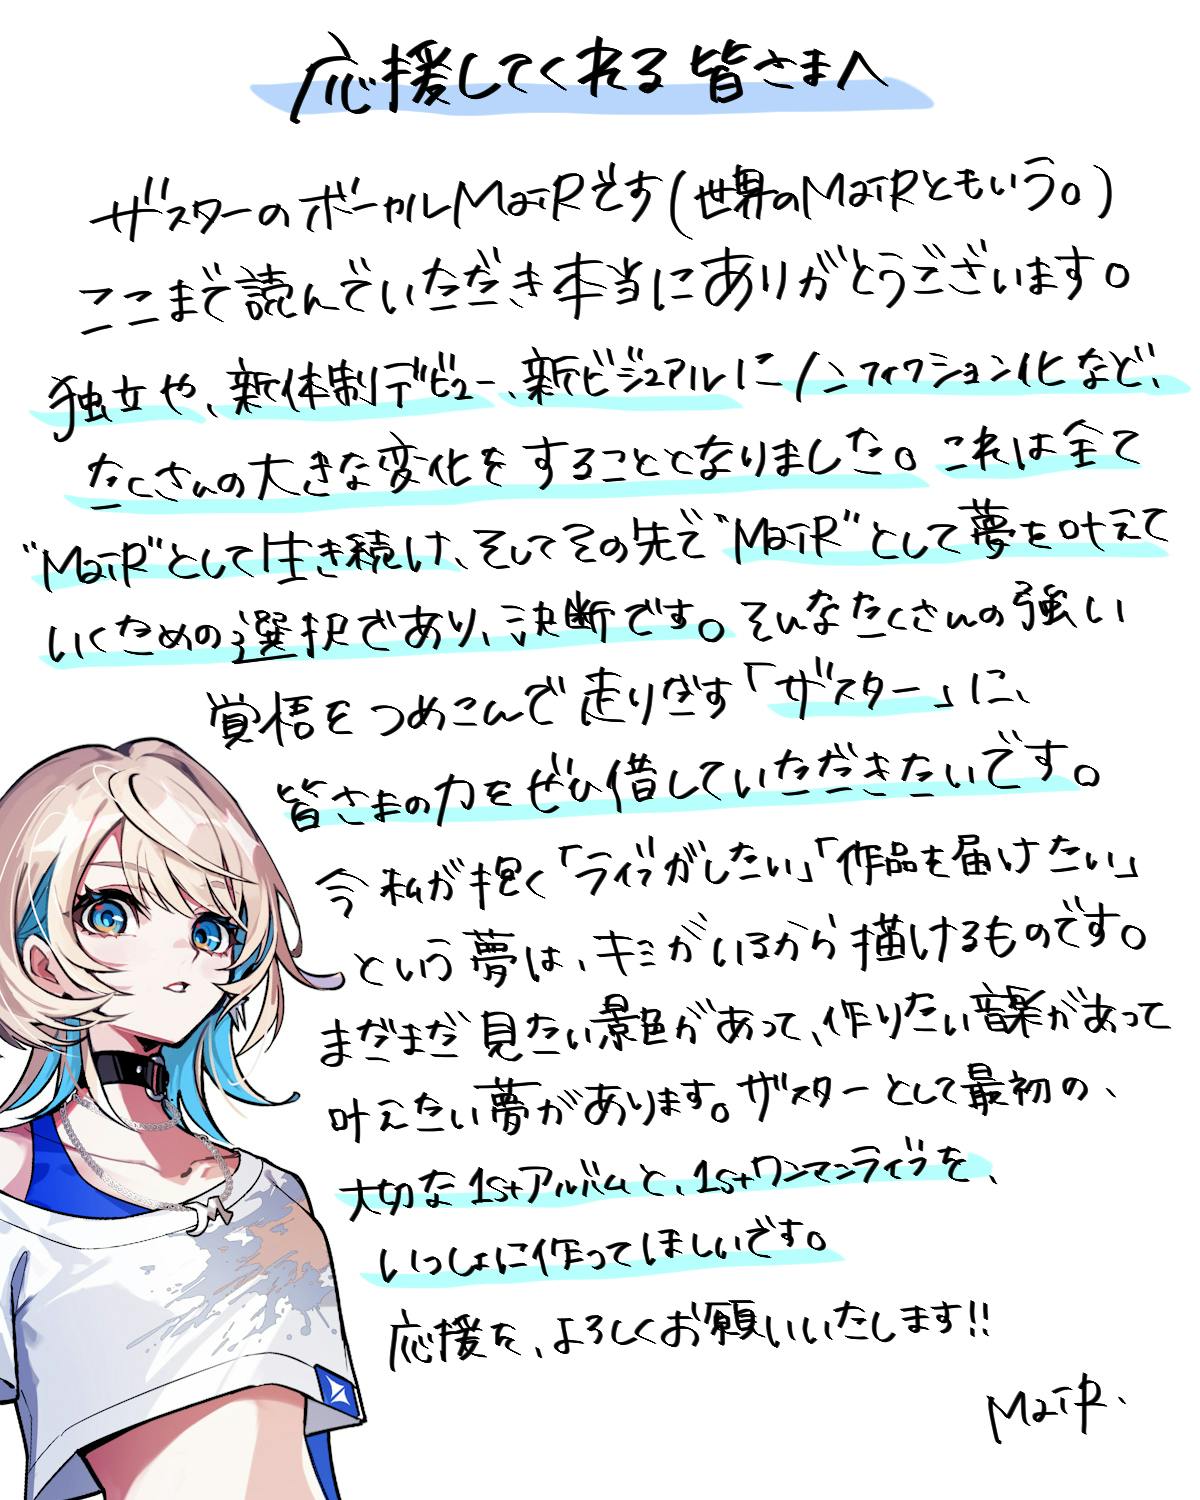 応援してくれる皆さまへ
ザスターのボーカルMaiRです(世界のMaiRともいう。)
ここまで読んでいただき本当にありがとうございます。
独立や、新体制デビュー、新ビジュアルにノンフィクション化など、
たくさんの大きな変化をすることとなりました。これは全て
"MaiR"として生き続け、そしてその先で"MaiR"として夢を叶えて
いくための選択であり、決断です。そんなたくさんの強い
覚悟をつめこんで走りだす「ザスター」に、
皆さまの力をぜひ借していただきたいです。
今私が抱く「ライブがしたい」「作品を届けたい」
という夢は、キミがいるから描けるものです。
まだまだ見たい景色があって、作りたい音楽があって
叶えたい夢があります。ザスターとして最初の、
大切な1stアルバムと、1stワンマンライブを、
いっしょに作ってほしいです。
応援を、よろしくお願いいたします!!
MaiR.